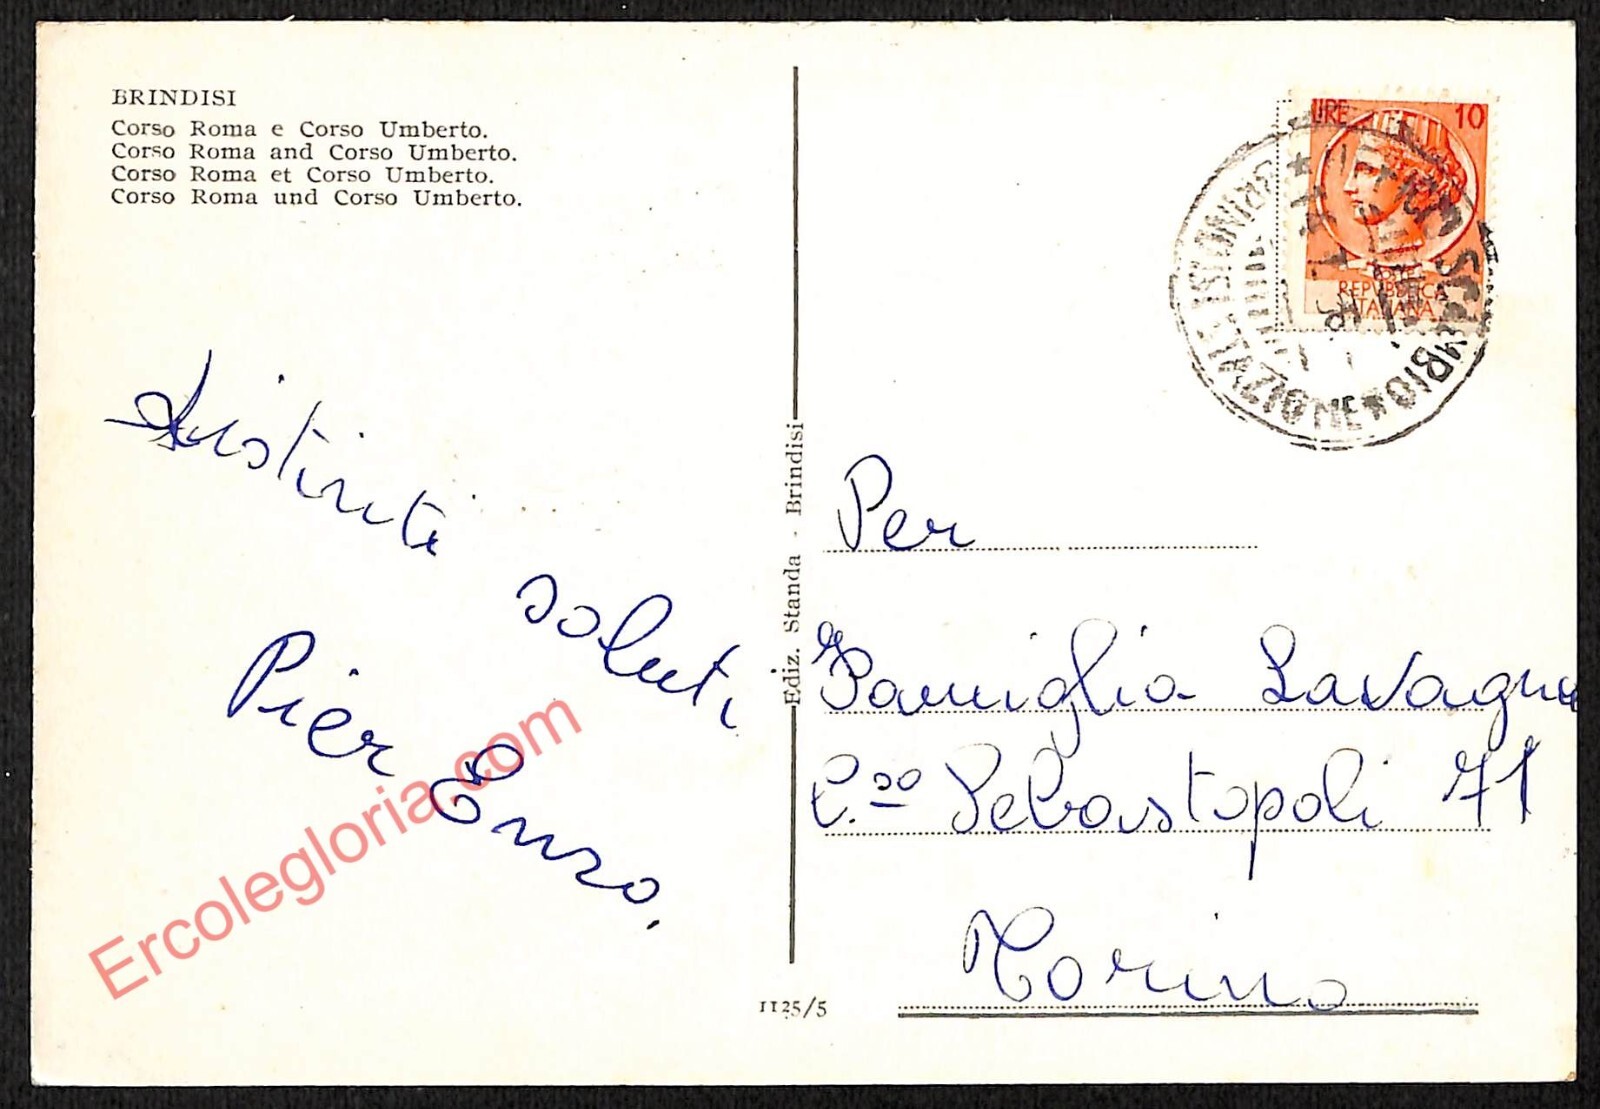 BRINDISI
Corso Roma e Corso Umberto.
Corso Roma and Corso Umberto.
Corso Roma et Corso Umberto.
Corso Roma und Corso Umberto.
Distinti saluti
Pier Enzo.
Ercolegloria.com
Ediz. Standa - Brindisi
1125/5
LIRE 10
POSTE
REPVBBLICA
ITALIANA
Per
Famiglia Lavagna
C.so Sebastopoli 71
Torino